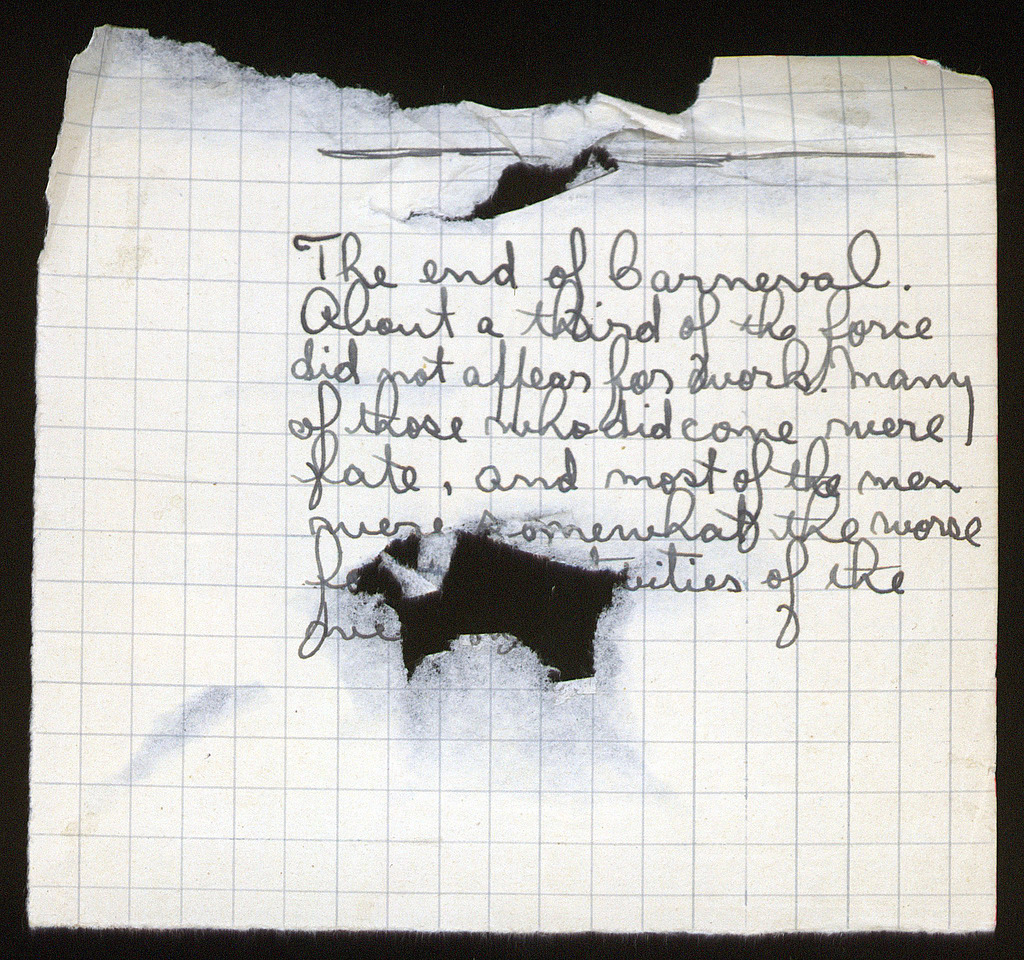 The end of Carneval.
About a third of the force
did not appear for work. Many
of those who did come were
late, and most of the men
were somewhat the worse
of the